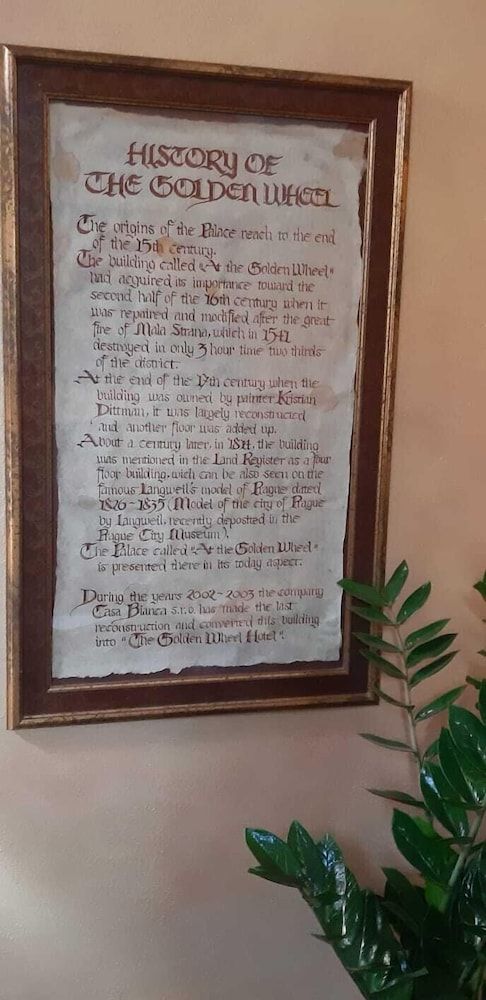 HISTORY OF
THE GOLDEN WHEEL
The origins of the Palace reach to the end
of the 15th century.
The building called "At the Golden Wheel"
had acquired its importance toward the
second half of the 16th century when it
was repaired and modified after the great
fire of Mala Strana, which in 1541
destroyed in only 3 hour time two thirds
of the district.
At the end of the 17th century when the
building was owned by painter Kristian
Dittman, it was largely reconstructed
and another floor was added up.
About a century later, in 1811, the building
was mentioned in the Land Register as a four
floor building, wich can be also seen on the
famous Langweil's model of Prague dated
1826-1835 (Model of the city of Prague
by Langweil, recently deposited in the
Prague City Museum).
The Palace called "At the Golden Wheel"
is presented there in its today aspect.
During the years 2002-2003 the company
Casa Bianca s.r.o. has made the last
reconstruction and converted this building
into "The Golden Wheel Hotel".